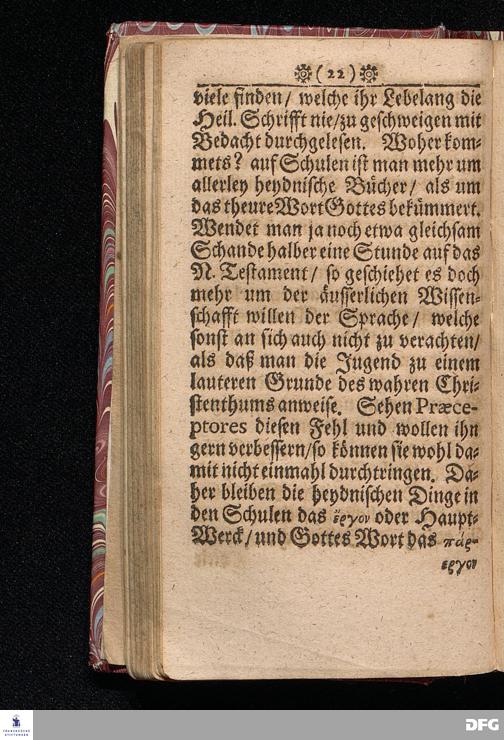 (22)
viele finden/ welche ihr Lebelang die
Heil. Schrifft nie/zu geschweigen mit
Bedacht durchgelesen. Woher kom-
mets? auf Schulen ist man mehr um
allerley heydnische Bücher/ als um
das theure Wort Gottes bekümmert.
Wendet man ja noch etwa gleichsam
Schande halber eine Stunde auf das
N. Testament/ so geschiehet es doch
mehr um der äusserlichen Wissen-
schafft willen der Sprache/ welche
sonst an sich auch nicht zu verachten/
als daß man die Jugend zu einem
lauteren Grunde des wahren Chri-
stenthums anweise. Sehen Præce-
ptores diesen Fehl und wollen ihn
gern verbessern/so können sie wohl da-
mit nicht einmahl durchtringen. Da-
her bleiben die heydnischen Dinge in
den Schulen das ἔργον oder Haupt-
Werck/und Gottes Wort das πάρ-
εργον
FRANCKESCHE STIFTUNGEN
DFG